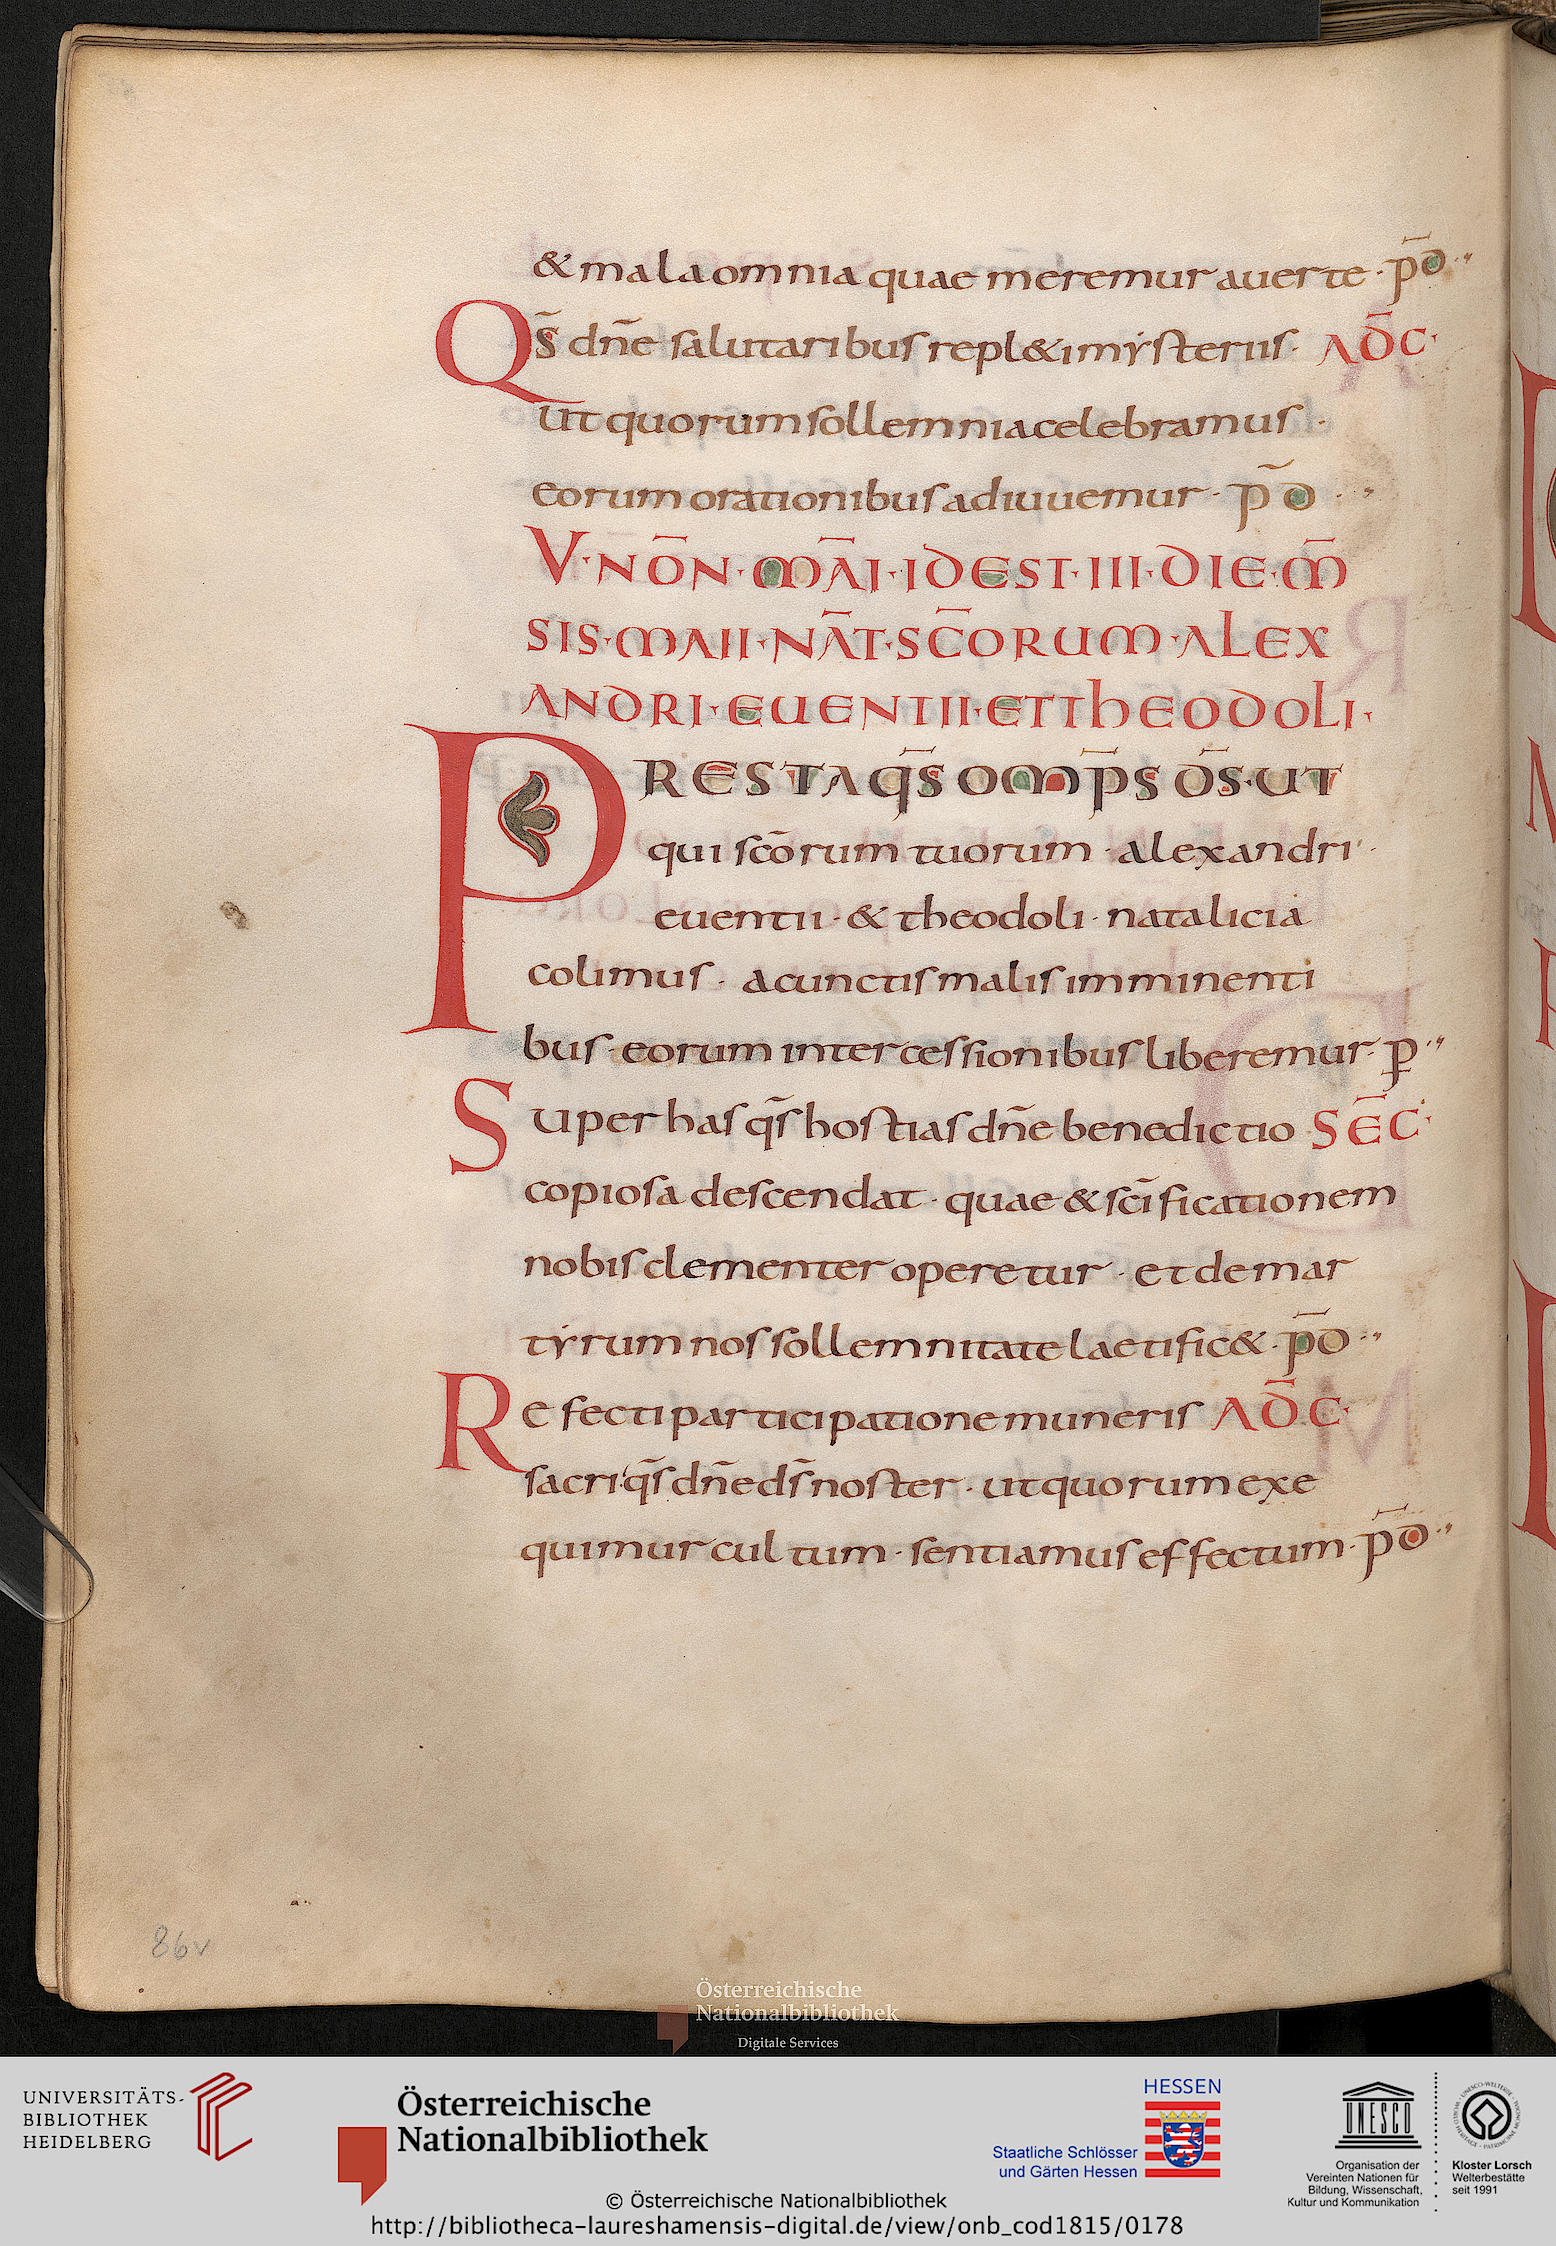 & mala omnia quae meremur auerte · p̄d
Qs̄ dn̄e salutaribus repl&i mẏsteriis · AD̄C·
ut quorum sollemnia celebramus ·
eorum orationibus adiuuemur · p̄d
V·NŌN·MĀI·IDEST·III·DIE·M̄
SIS·MAII·NĀT·SC̄ORUM·ALEX
ANDRI·EUENTII·ET THEODOLI·
PRESTA QS̄ OMP̄S D̄S·UT
qui scōrum tuorum · alexandri ·
euentii · & theodoli · natalicia
colimus · a cunctis malis imminenti
bus · eorum intercessionibus liberemur · ꝑ
Super has qs̄ hostias dn̄e benedictio SĒC·
copiosa descendat · quae & scīficationem
nobis clementer operetur · et de mar
tẏrum nos sollemnitate laetific& · p̄d
Refecti participatione muneris AD̄C·
sacri qs̄ dn̄e ds̄ noster · ut quorum exe
quimur cultum · sentiamus effectum · p̄d
86v
Österreichische
Nationalbibliothek
Digitale Services
UNIVERSITÄTS-
BIBLIOTHEK
HEIDELBERG
Österreichische
Nationalbibliothek
HESSEN
Staatliche Schlösser
und Gärten Hessen
UNESCO
Organisation der
Vereinten Nationen für
Bildung, Wissenschaft,
Kultur und Kommunikation
Kloster Lorsch
Welterbestätte
seit 1991
© Österreichische Nationalbibliothek
http://bibliotheca-laureshamensis-digital.de/view/onb_cod1815/0178